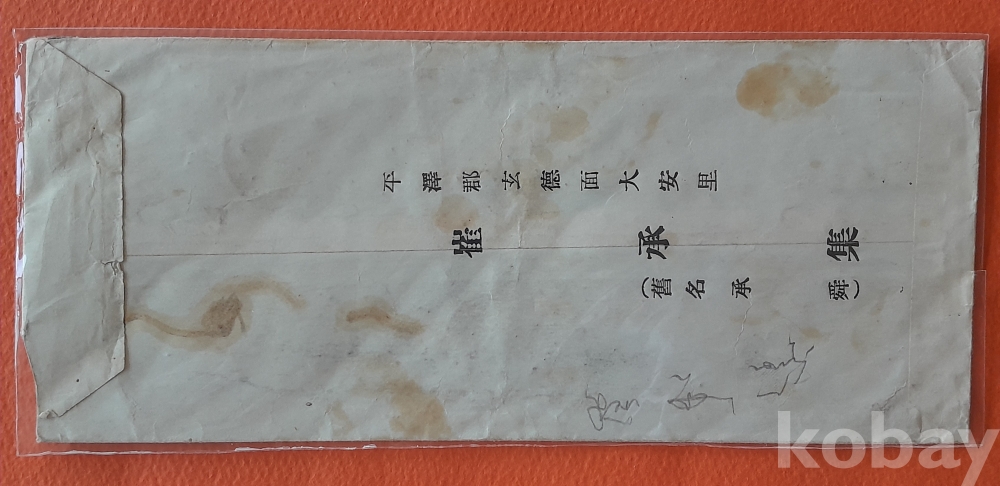 平澤郡玄德面大安里
崔承集
(舊名承舜)
kobay